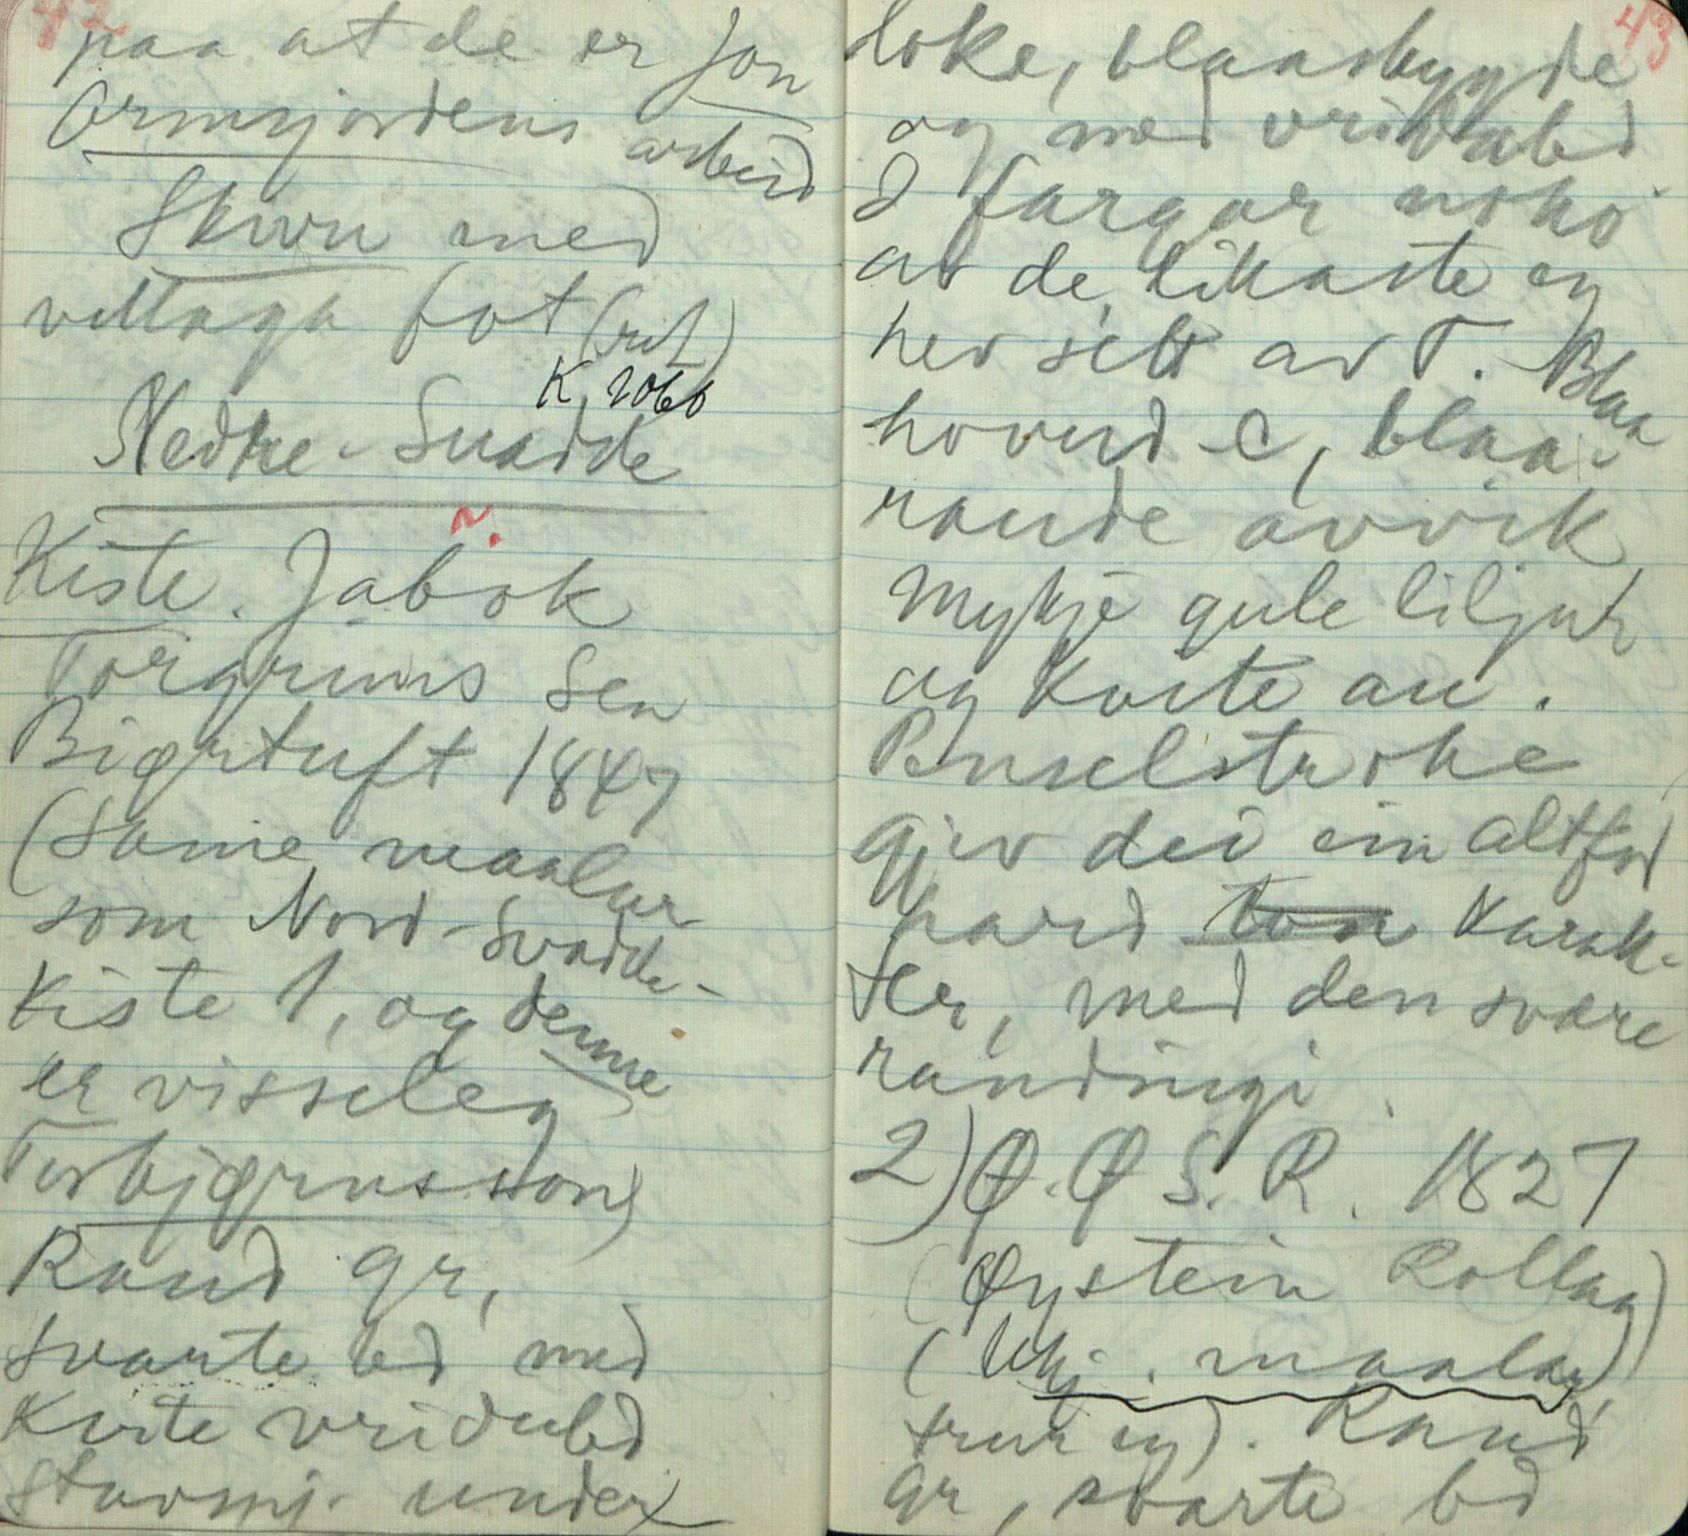 42
paa at de er Jon
Ormsjordens arbeid
Skrin med
vottaga fot (rut)
K 2066
Nedre-Svadde
Kiste. Jabok
Torgrims Sen
Biørtuft 1847
(Same maalar
som Nord-Svadde-
Kiste 1, og denne
er visseleg
Torbjørnsson)
Raud gr,
svarte bd med
Kvite vridubd
Stavmj. under
43
loke, blaaskyggde
og med vridubd
I fargar noko
av de likaste eg
hev sett av T. Blaa
hovud-C, blaa-
raude avvik
Mykje gule liljur
og Kvite au.
Penselstroke
gjev dei ein altfor
hard ton Karak-
ter, med den svære
randingi.
2) Ø. Ø S. R. 1827
(Øystein Rollag)
(Ukj. maalar,
trur eg). Raud
gr, svarte bd